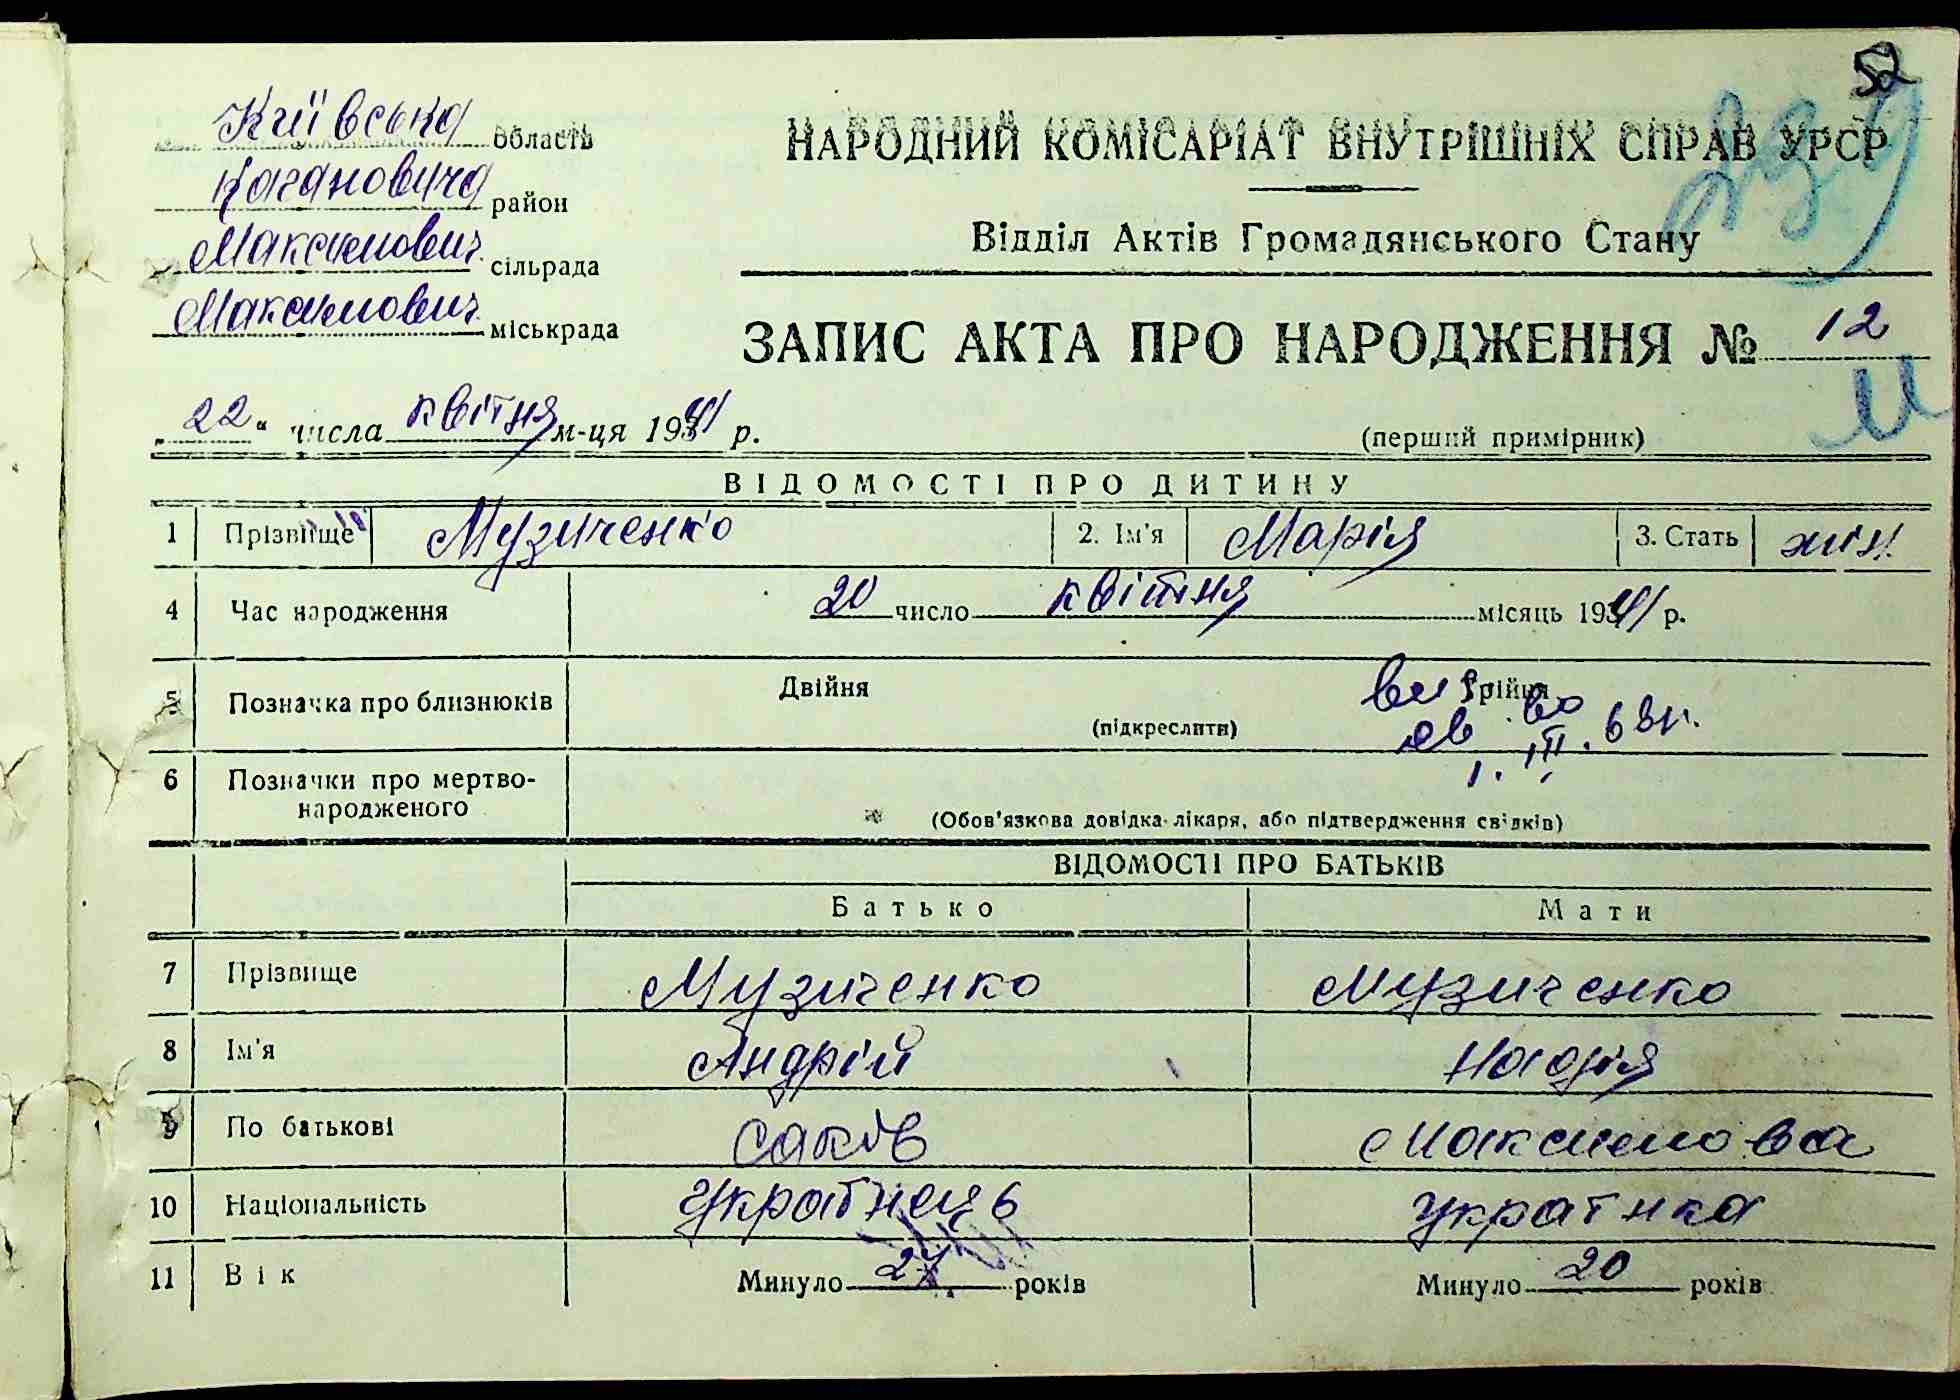 52
239
Київська область
Кагановича район
Максимович. сільрада
Максимович. міськрада
НАРОДНИЙ КОМІСАРІАТ ВНУТРІШНІХ СПРАВ УРСР
Відділ Актів Громадянського Стану
ЗАПИС АКТА ПРО НАРОДЖЕННЯ № 12
„22“ числа квітня м-ця 1941 р.
(перший примірник)
ВІДОМОСТІ ПРО ДИТИНУ
1 Прізвище Музиченко 2. Ім'я Марія 3. Стать жін.
4 Час народження 20 число квітня місяць 1941 р.
5 Позначка про близнюків Двійня Трійня
(підкреслити)
св. во
1. III. 63 г.
6 Позначки про мертво-
народженого
(Обов'язкова довідка лікаря, або підтвердження свідків)
ВІДОМОСТІ ПРО БАТЬКІВ
Батько Мати
7 Прізвище Музиченко Музиченко
8 Ім'я Андрій Надія
9 По батькові Саків Максимова
10 Національність Українець Українка
11 Вік Минуло років Минуло 20 років